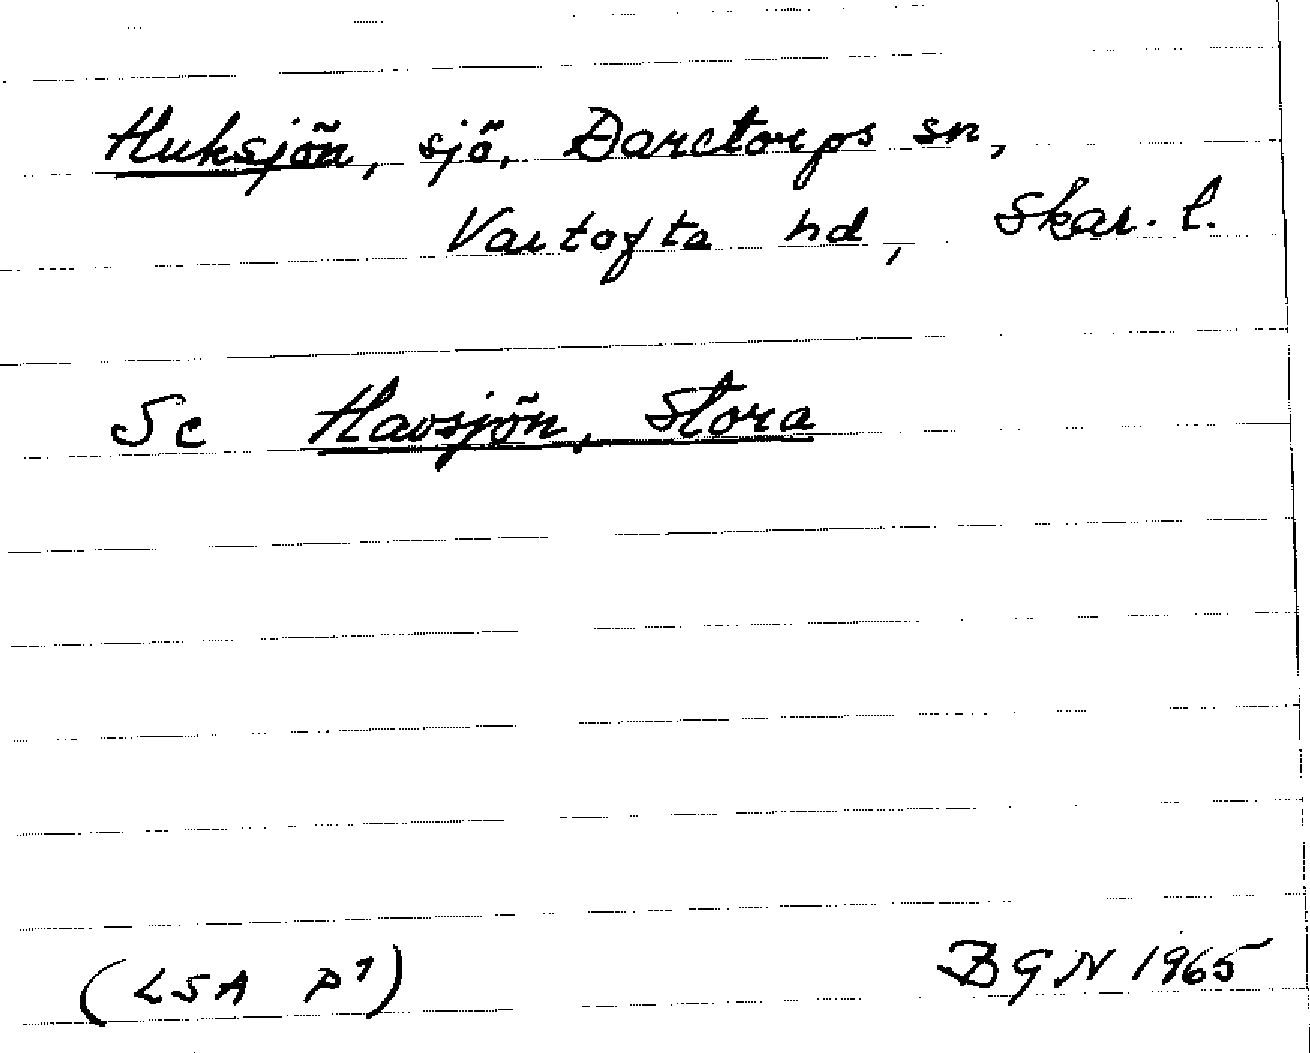 Huksjön, sjö, Daretorps sn,
Vartofta hd, Skar. l.
Se Havsjön, Stora
(LSA P7)
BGN 1965